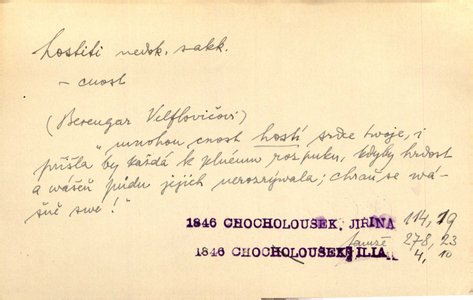 hostiti nedok. sakk.
– cnost
(Berengar Vilflovičovi)
"mnohou cnost hostí srdce tvoje, i
přišla by každá k plnému rozpuku, kdyby hrdost
a vášeň půdu jejich nerozrývala; chraň se vá-
šně své!"
1846 CHOCHOLOUSEK, JIRINA 114, 19
tamže 278, 23
1846 CHOCHOLOUSEK, ILIA 4, 10